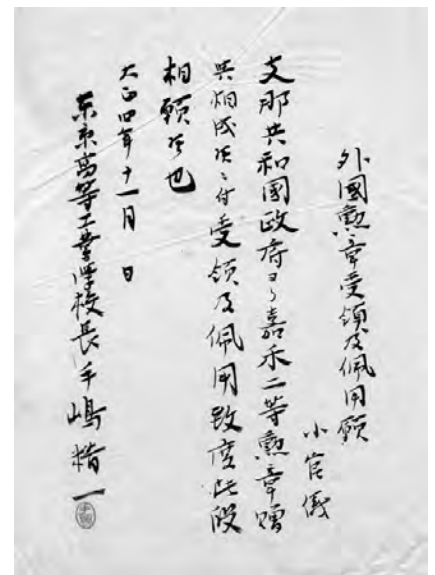 外國勲章受領及佩用願
小官儀
支那共和國政府ヨリ嘉禾二等勲章贈
與相成候ニ付受領及佩用致度此段
相願候也
大正四年十一月 日
東京高等工業學校長手嶋精一